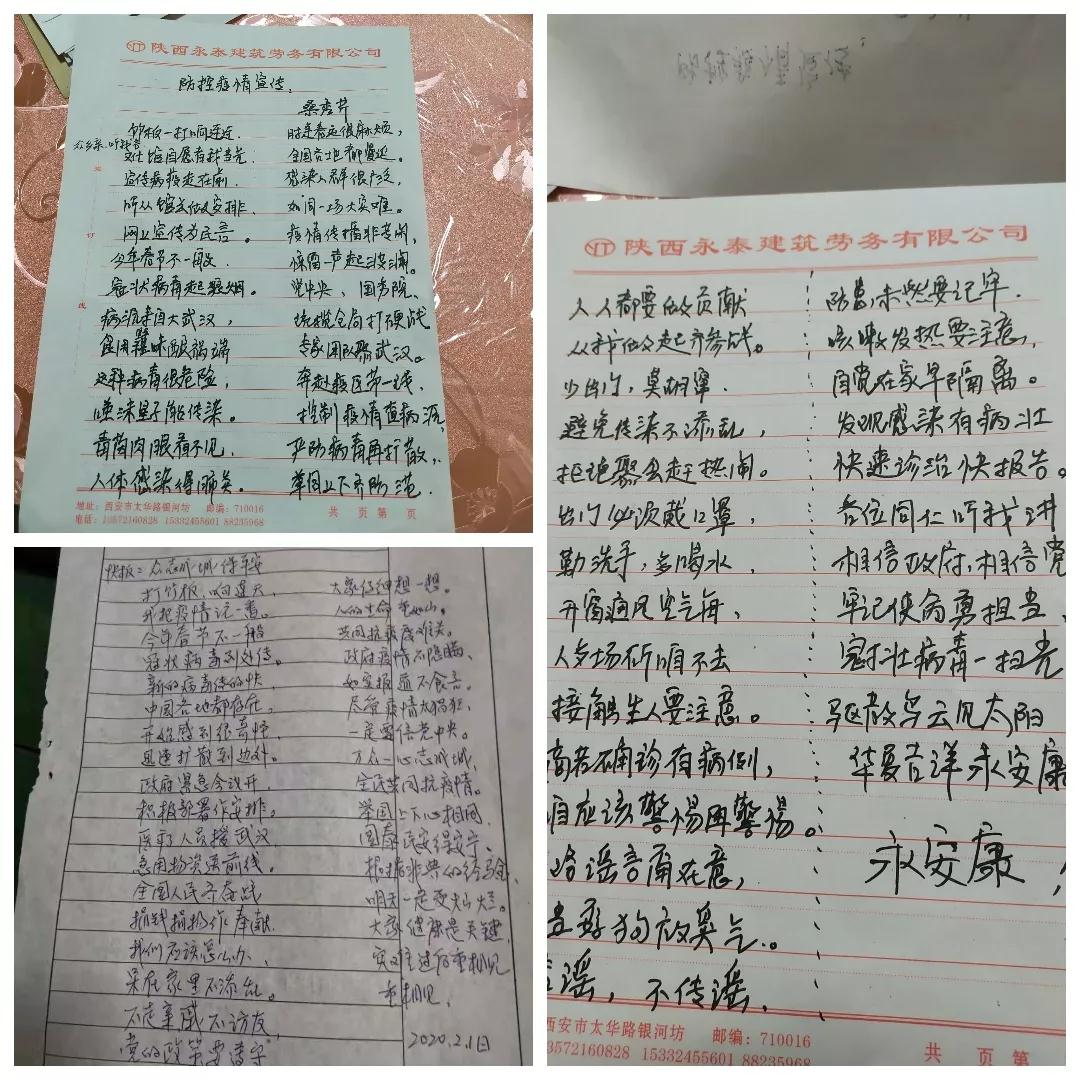 陕西永泰建筑劳务有限公司
防控疫情宣传
桑秀芹
竹板一打响连连
众乡亲,听我言
文化馆自愿者我当先
宣传病疫走在前
听从馆长做安排
网上宣传为民言。
今年春节不一般
冠状病毒起狼烟。
病源来自大武汉,
食用野味酿祸端
这种病毒很危险,
唾沫星子能传染。
毒菌肉眼看不见
人体感染得肺炎。
时逢春运很麻烦,
全国各地都蔓延。
感染人群很广泛,
如同一场大灾难。
疫情传播非等闲,
惊雷一声起波澜。
党中央、国务院、
统揽全局打硬战
专家团队聚武汉。
奔赴疫区第一线,
控制疫情查病源,
严防病毒再扩散,
举国上下齐防范
地址:西安市太华路银河坊 邮编:710016
电话:13572160828 15332455601 88235968
共 页 第 页
陕西永泰建筑劳务有限公司
人人都要做贡献
从我做起齐参战。
少出门,莫胡窜
避免传染不添乱,
拒绝聚会赶热闹。
出门必须戴口罩,
勤洗手,多喝水
开窗通风空气每,
人多场所咱不去
接触生人要注意。
若确诊有病例,
咱应该警惕再警惕。
谣言甭在意,
狗放臭气。
信谣,不传谣
防患未然要记牢
咳嗽发热要注意,
自觉在家早隔离。
发现感染有病状
快速诊治快报告。
各位同仁听我讲
相信政府,相信党
牢记使命勇担当、
冠状病毒一扫光
驱散乌云见太阳
华夏吉祥永安康
永安康!
西安市太华路银河坊 邮编:710016
3572160828 15332455601 88235968
共 页 第
快板:众志成城保平安
打竹板,响连天,
我把疫情说一番。
今年春节不一般
冠状病毒到处传。
新的病毒传的快,
中国各地都存在,
开始感到很奇怪,
迅速扩散到边外。
政府紧急会议开
积极部署作安排。
医疗人员援武汉
急用物资送前线。
全国人民齐奋战
捐钱捐物作奉献。
我们应该怎么办,
呆在家里不添乱。
不走亲戚不访友
党的政策要遵守
大家仔细想一想。
人的生命重如山。
共同抗疫度难关。
政府疫情不隐瞒,
如实报道不食言。
尽管疫情太猖狂,
一定要信党中央。
万众一心志成城,
全民共同抗疫情。
举国上下心相同
国泰民安得安宁、
明天一定更灿烂。
大家健康是关键,
灾难过后重相见
重相见,
2020.2.1日